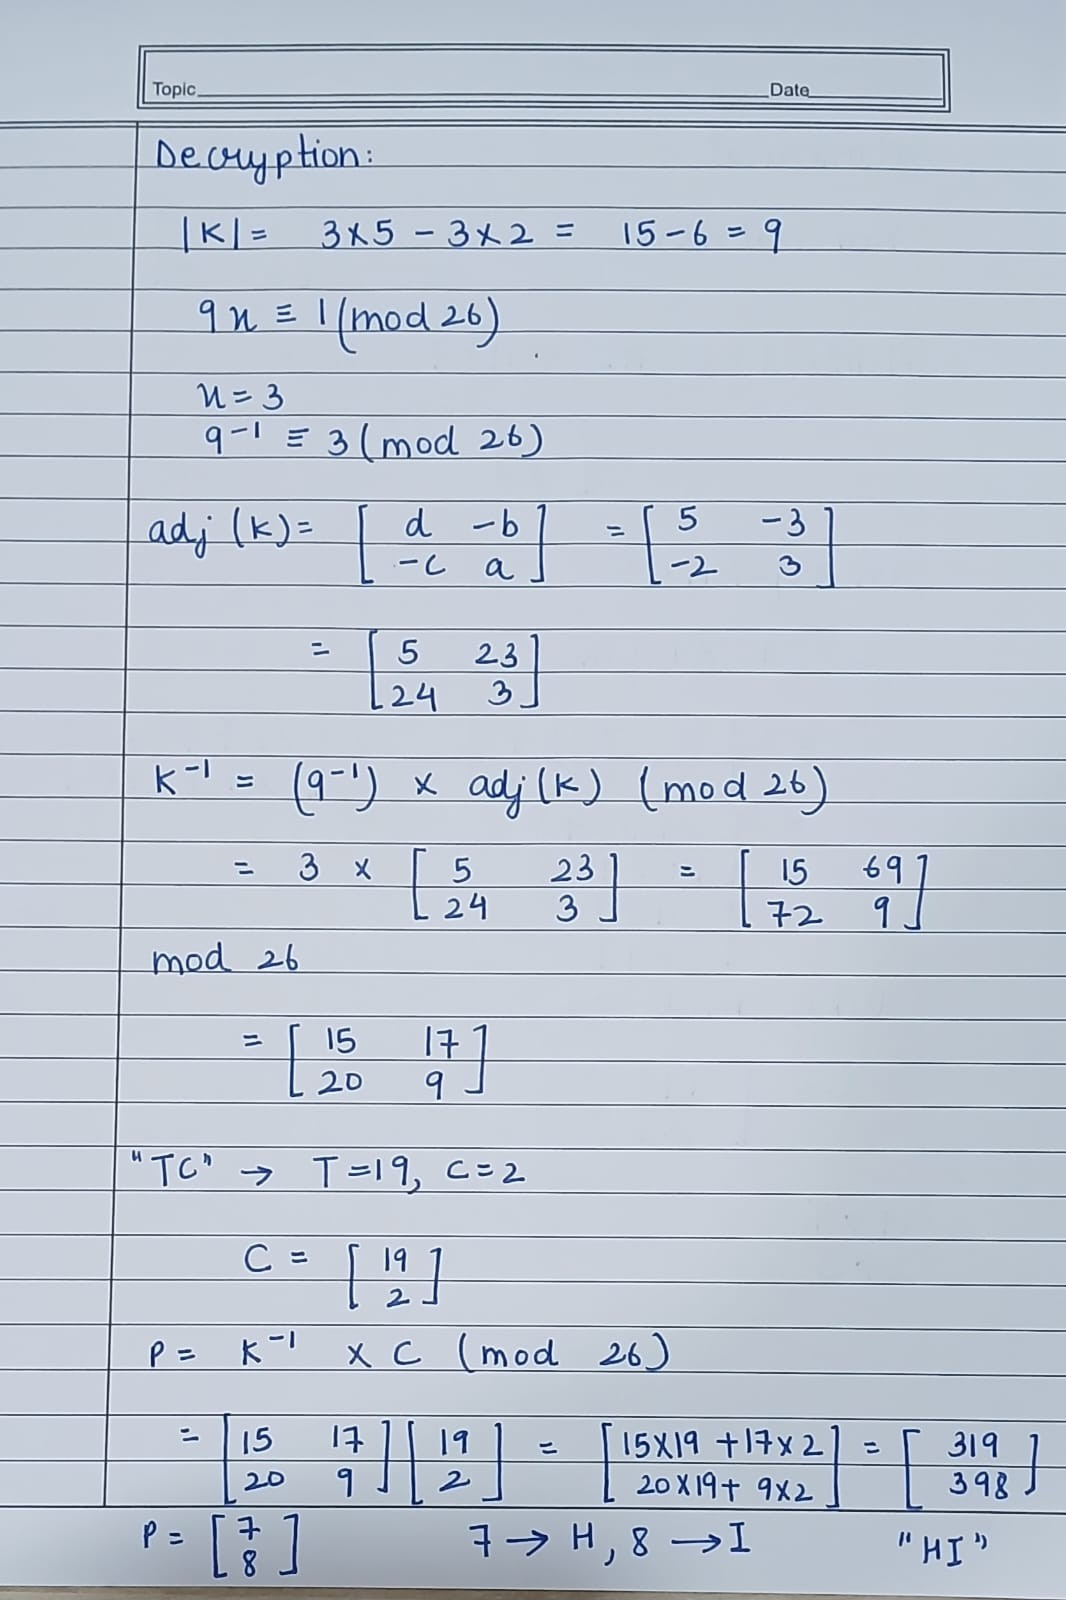 Topic Date
Decryption:
|K| = 3×5 - 3×2 = 15-6 = 9
9x ≡ 1 (mod 26)
x = 3
9-1 ≡ 3 (mod 26)
adj (K) = [ d -b ] = [ 5 -3 ]
[ -c a ] [ -2 3 ]
= [ 5 23 ]
[ 24 3 ]
K-1 = (9-1) × adj (K) (mod 26)
= 3 × [ 5 23 ] = [ 15 69 ]
[ 24 3 ] [ 72 9 ]
mod 26
= [ 15 17 ]
[ 20 9 ]
"TC" → T=19, C=2
C = [ 19 ]
[ 2 ]
P = K-1 × C (mod 26)
= [ 15 17 ] [ 19 ] = [ 15×19 + 17×2 ] = [ 319 ]
[ 20 9 ] [ 2 ] [ 20×19 + 9×2 ] [ 398 ]
P = [ 7 ] 7 → H, 8 → I "HI"
[ 8 ]